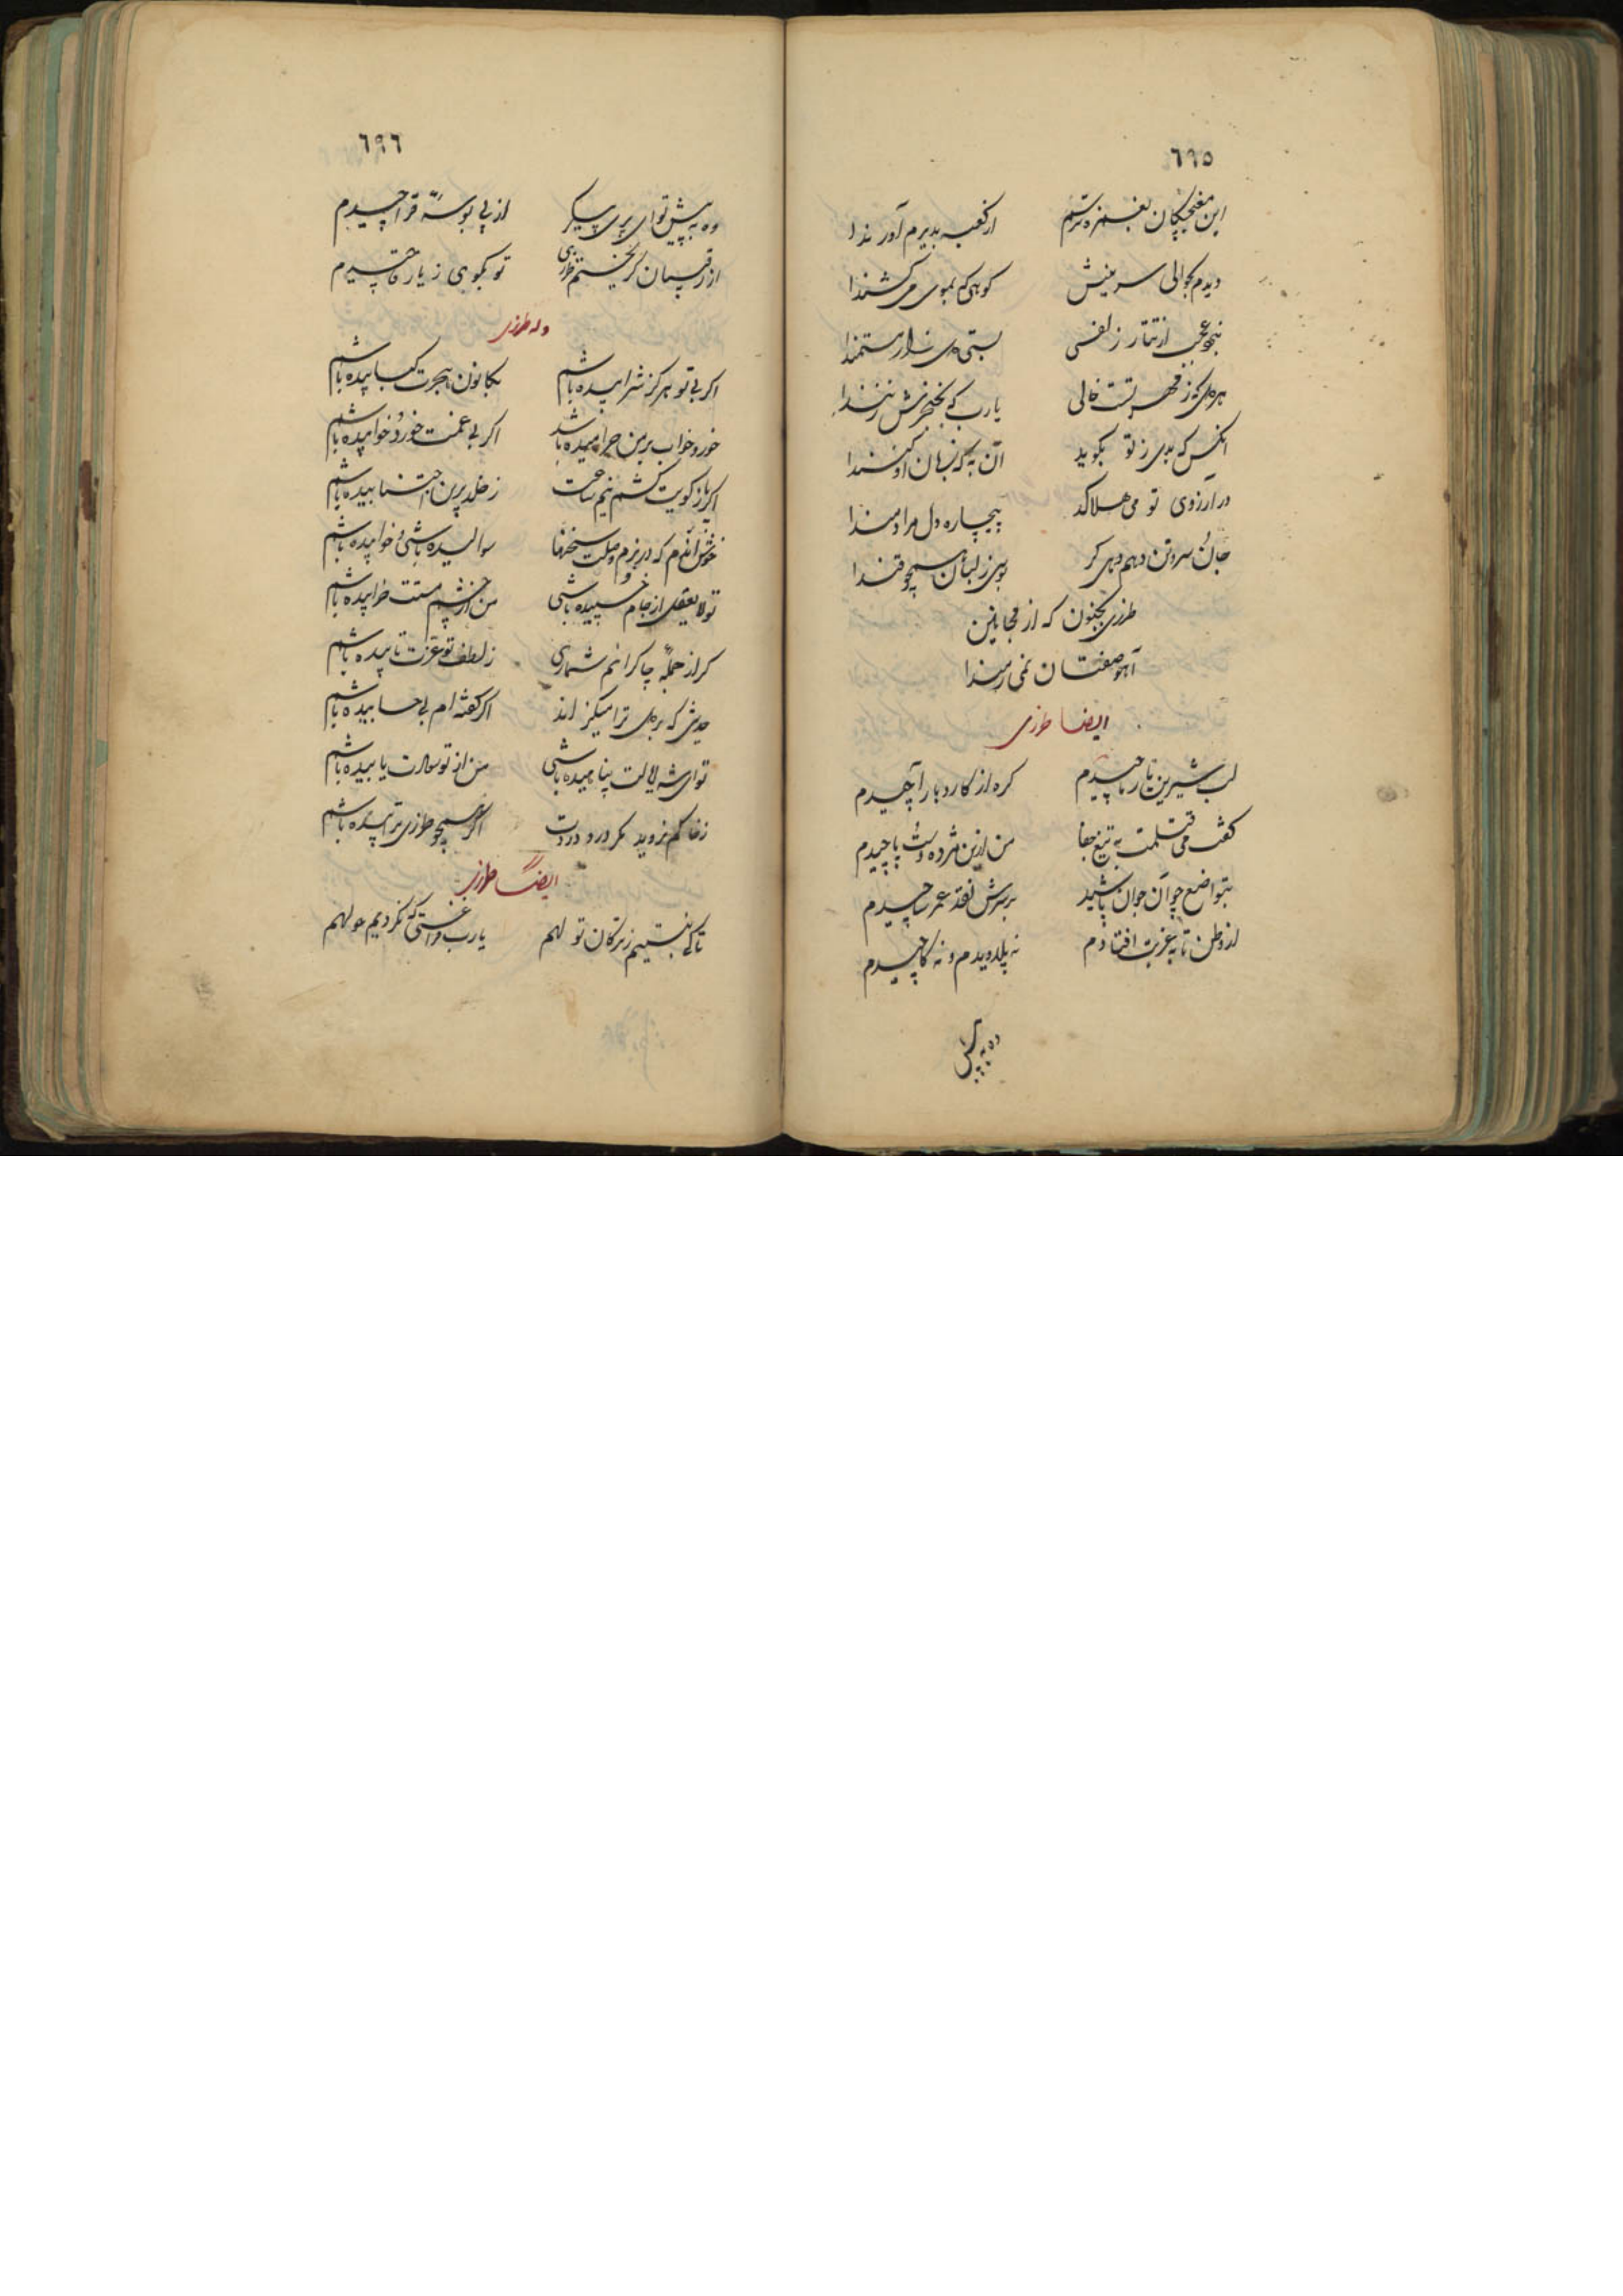 ٦٩٥
این مغبچگان بغمزه ترسم
از کعبه بدیرم آورندا
دیدم بحوالی سرینش
کوهی که بموی می کشندا
نبود عجب از تتار زلفس
هر دلی که ز مهر تست خالی
یارب که بخنجرش زنندا
انکس که بدی ز تو بگوید
آن به که زبان او کنندا
در آرزوی تو می هلاکد
بیچاره دل مرادمندا
جان و سر و تن دهم دهی کر
بوسی ز لبان همچو قندا
طرزی بجنون که از مجانین
آهو صفتان نمی رمندا
ایضا طرزی
لب شیرین یار ماچیدم
کره از کار دبار آچیدم
کفت می قتلمت به تیغ جفا
من ازین مژده دست پاچیدم
بتواضع چو آن جوان پاشید
بر سرش نقد عمر ساچیدم
از وطن تا به غربت افتادم
نه پلاویدم و نه کماچیدم
وه به پیش
٦٩٦
وه به پیش تو ای پری پیکر
از پی بوسه قراچیدم
از رقیبان کریختم طرزی
تو بکوی ز یار قاچیدم
وله طرزی
اکر بی تو هرکز شرابیده باشم
بکانون هجرت کبابیده باشم
خور و خواب بر من حرامیده باشد
اکر بی غمت خورد و خوابیده باشم
اکر باز کویت کشم نیم ساعت
ز خلد برین اجتنابیده باشم
خوش اندم که در بزم وصلت سخنها
سوالیده باشی و جوابیده باشم
تو لا یعقل از جام خسپیده باشی
من از چشم مستت خرابیده باشم
کر از جمله چاکرانم شماری
ز لطف تو عزت تابیده باشم
حدیثی که بر دل ترا میکزاند
اکر کفته ام بی حسابیده باشم
تو ای شه لالت پناهیده باشی
من از تو سارت یابیده باشم
ز خاکم نروید مکر درد و دردت
اکر همچو طرزی ترابیده باشم
ایضا طرزی
تا کی بنشینیم ز ترکان تو لهم
یارب و راستی که نکردیم جو لهم